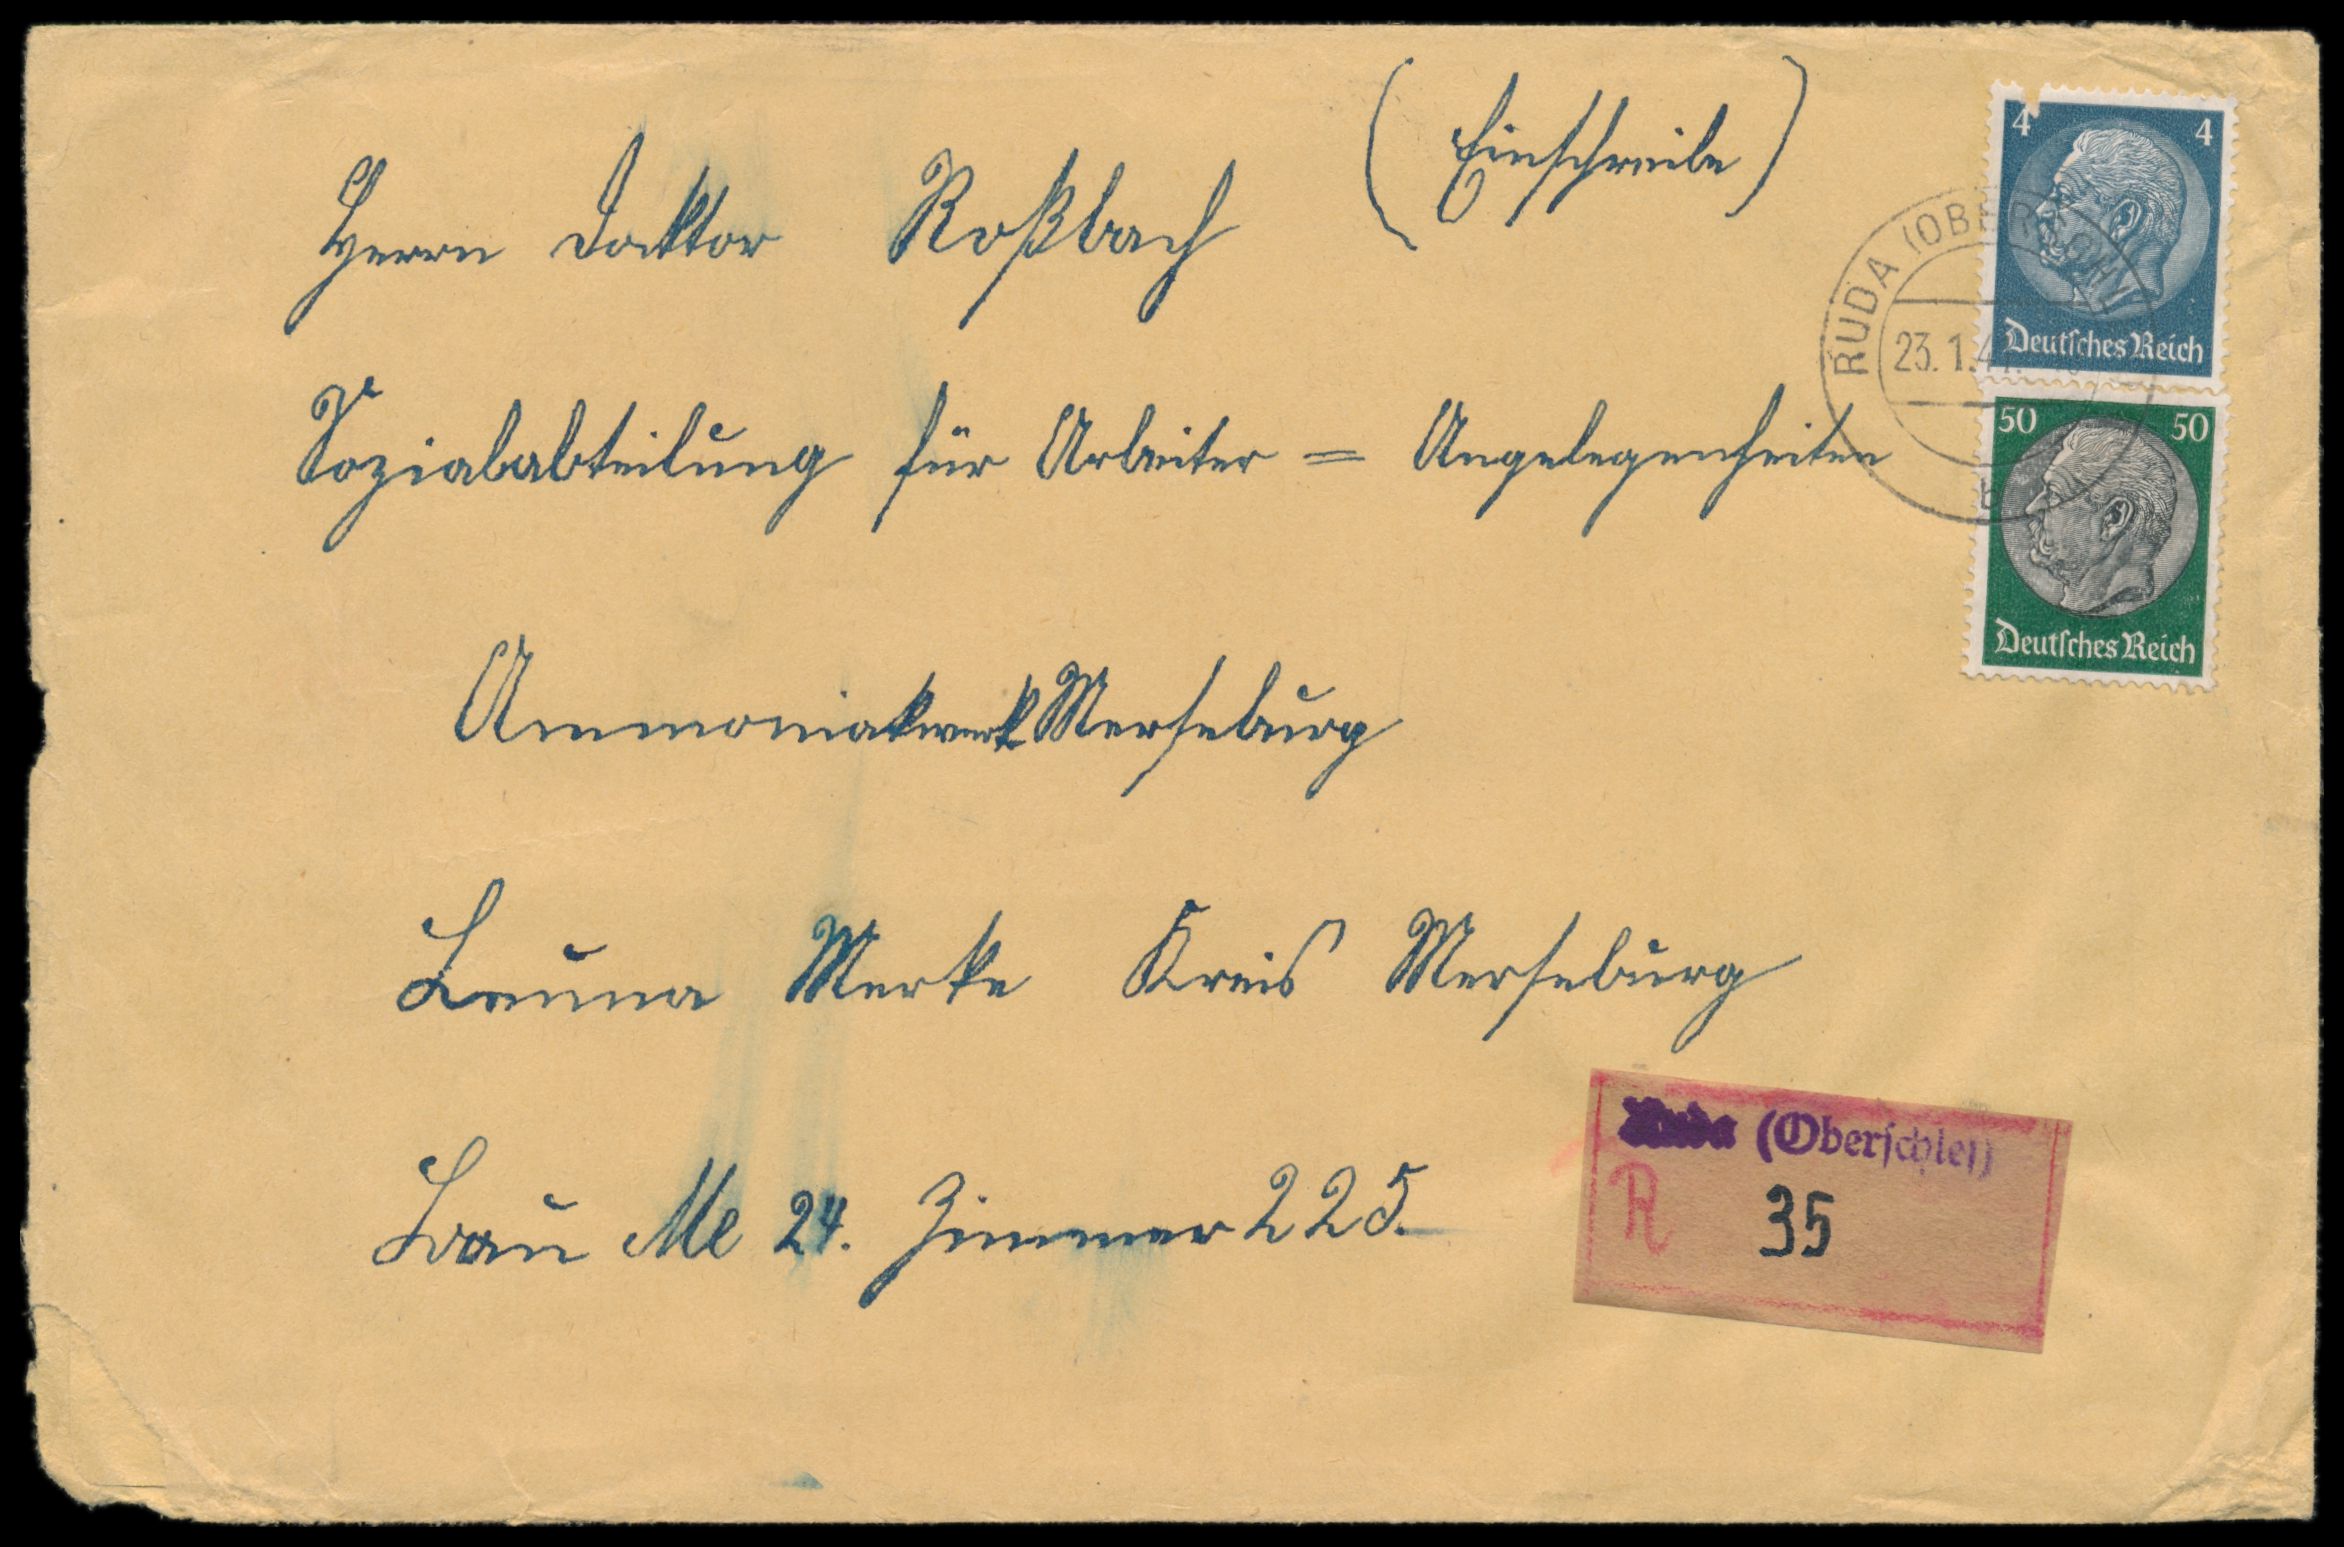 (Einschreibe)
Herrn Doktor Roßbach
Sozialabteilung für Arbeiter = Angelegenheiten
Ammoniakwerk Merseburg
Leuna Werke Kreis Merseburg
Bau Me 24. Zimmer 225.
4 4
Deutsches Reich
50 50
Deutsches Reich
RUDA (OBERSCHL)
23.1.41
b
Ruda (Oberschles)
R 35